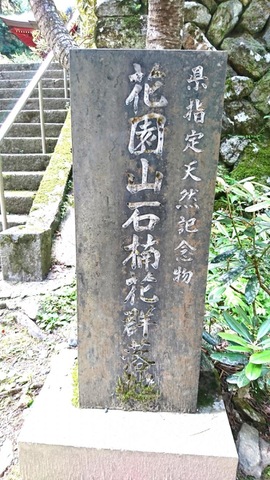 県指定天然記念物
花園山石楠花群落